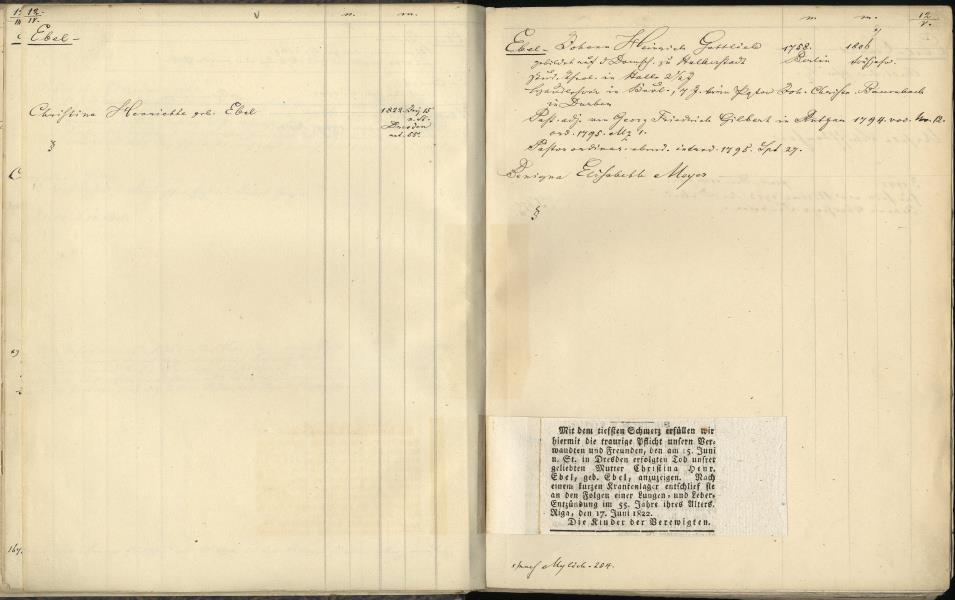 12.
IV.
n.
m.
Ebel-
Christina Henriette geb. Ebel
1822 Juny 15
n. St.
Dresden
aet. 55.
n.
m.
12
V.
Ebel- Johann Heinrich Gottlieb 1758. 1806
gebildet auf d Domsch. zu Halberstadt Berlin
stud. theol. in Halle 2½ J
Hauslehrer in Kurl. 7 J. beim Pastor Joh. Christo.
in Durben
Past. adj. von Georg Friedrich Gilbert in 1794. voc.
ord. 1795. Mz 1.
Pastor ordinar. ebend. introd. 1795. Spt 27.
Benigna Elisabeth Meyer
Mit dem tiefsten Schmerz erfüllen wir
hiermit die traurige Pflicht unsern Ver-
wandten und Freunden, den am 15. Juni
n. St. in Dresden erfolgten Tod unsrer
geliebten Mutter Christina Henr.
Ebel, geb. Ebel, anzuzeigen. Nach
einem kurzen Krankenlager entschlief sie
an den Folgen einer Lungen- und Leber-
Entzündung im 55. Jahre ihres Alters.
Riga, den 17. Juni 1822.
Die Kinder der Verewigten.